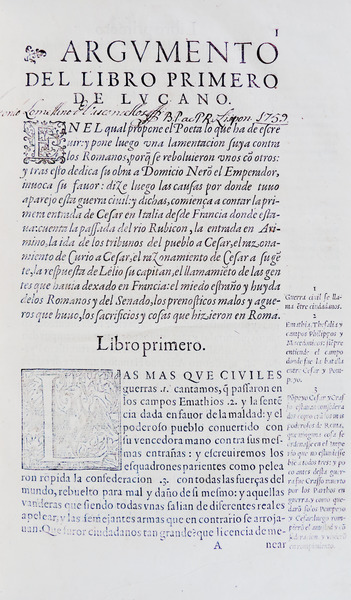 1
ARGVMENTO
DEL LIBRO PRIMERO
DE LVCANO.
1759
EN EL qual propone el Poeta lo que ha de escre
uir: y pone luego vna lamentacion suya contra
los Romanos, porq̃ se reboluieron vnos cõ otros:
y tras esto dedica su obra a Domicio Nerõ el Emperador,
inuoca su fauor: dize luego las causas por donde tuuo
aparejo esta guerra ciuil: y dichas, comiença a contar la pri
mera entrada de Cesar en Italia desde Francia donde esta-
ua: cuenta la passada del rio Rubicon, la entrada en Ari-
mino, la ida de los tribunos del pueblo a Cesar, el razona-
miento de Curio a Cesar, el razonamiento de Cesar a su gẽ
te, la respuesta de Lelio su capitan, el llamamiẽto de las gen
tes que hauia dexado en Francia: el miedo estraño y huyda
delos Romanos y del Senado, los prenosticos malos y ague-
ros que huuo, los sacrificios y cosas que hizieron en Roma.
Libro primero.
LAS MAS QVE CIVILES
guerras .1. cantamos, q̃ passaron en
los campos Emathios .2. y la sentẽ
cia dada en fauor de la maldad: y el
poderoso pueblo conuertido con
su vencedora mano contra sus mes-
mas entrañas: y escreuiremos los
esquadrones parientes como pelea
ron rōpida la confederacion .3. con todas las fuerças del
mundo, rebuelto para mal y daño de si mesmo: y aquellas
vanderas que siendo todas vnas salian de diferentes reales
a pelear, y las semejantes armas que en contrario se arroja-
uan. Que furor ciudadanos tan grande? que licencia de me-
A
near
1
Guerra ciuil se lla
ma entre ciudadanos.
2
Emathia, Thessalia y
campos Philippos y
Macedonicos:
el campo
donde fue la
batalla entre
Cesar y Pom-
peyo.
3
Pōpeyo Cesar y Craso